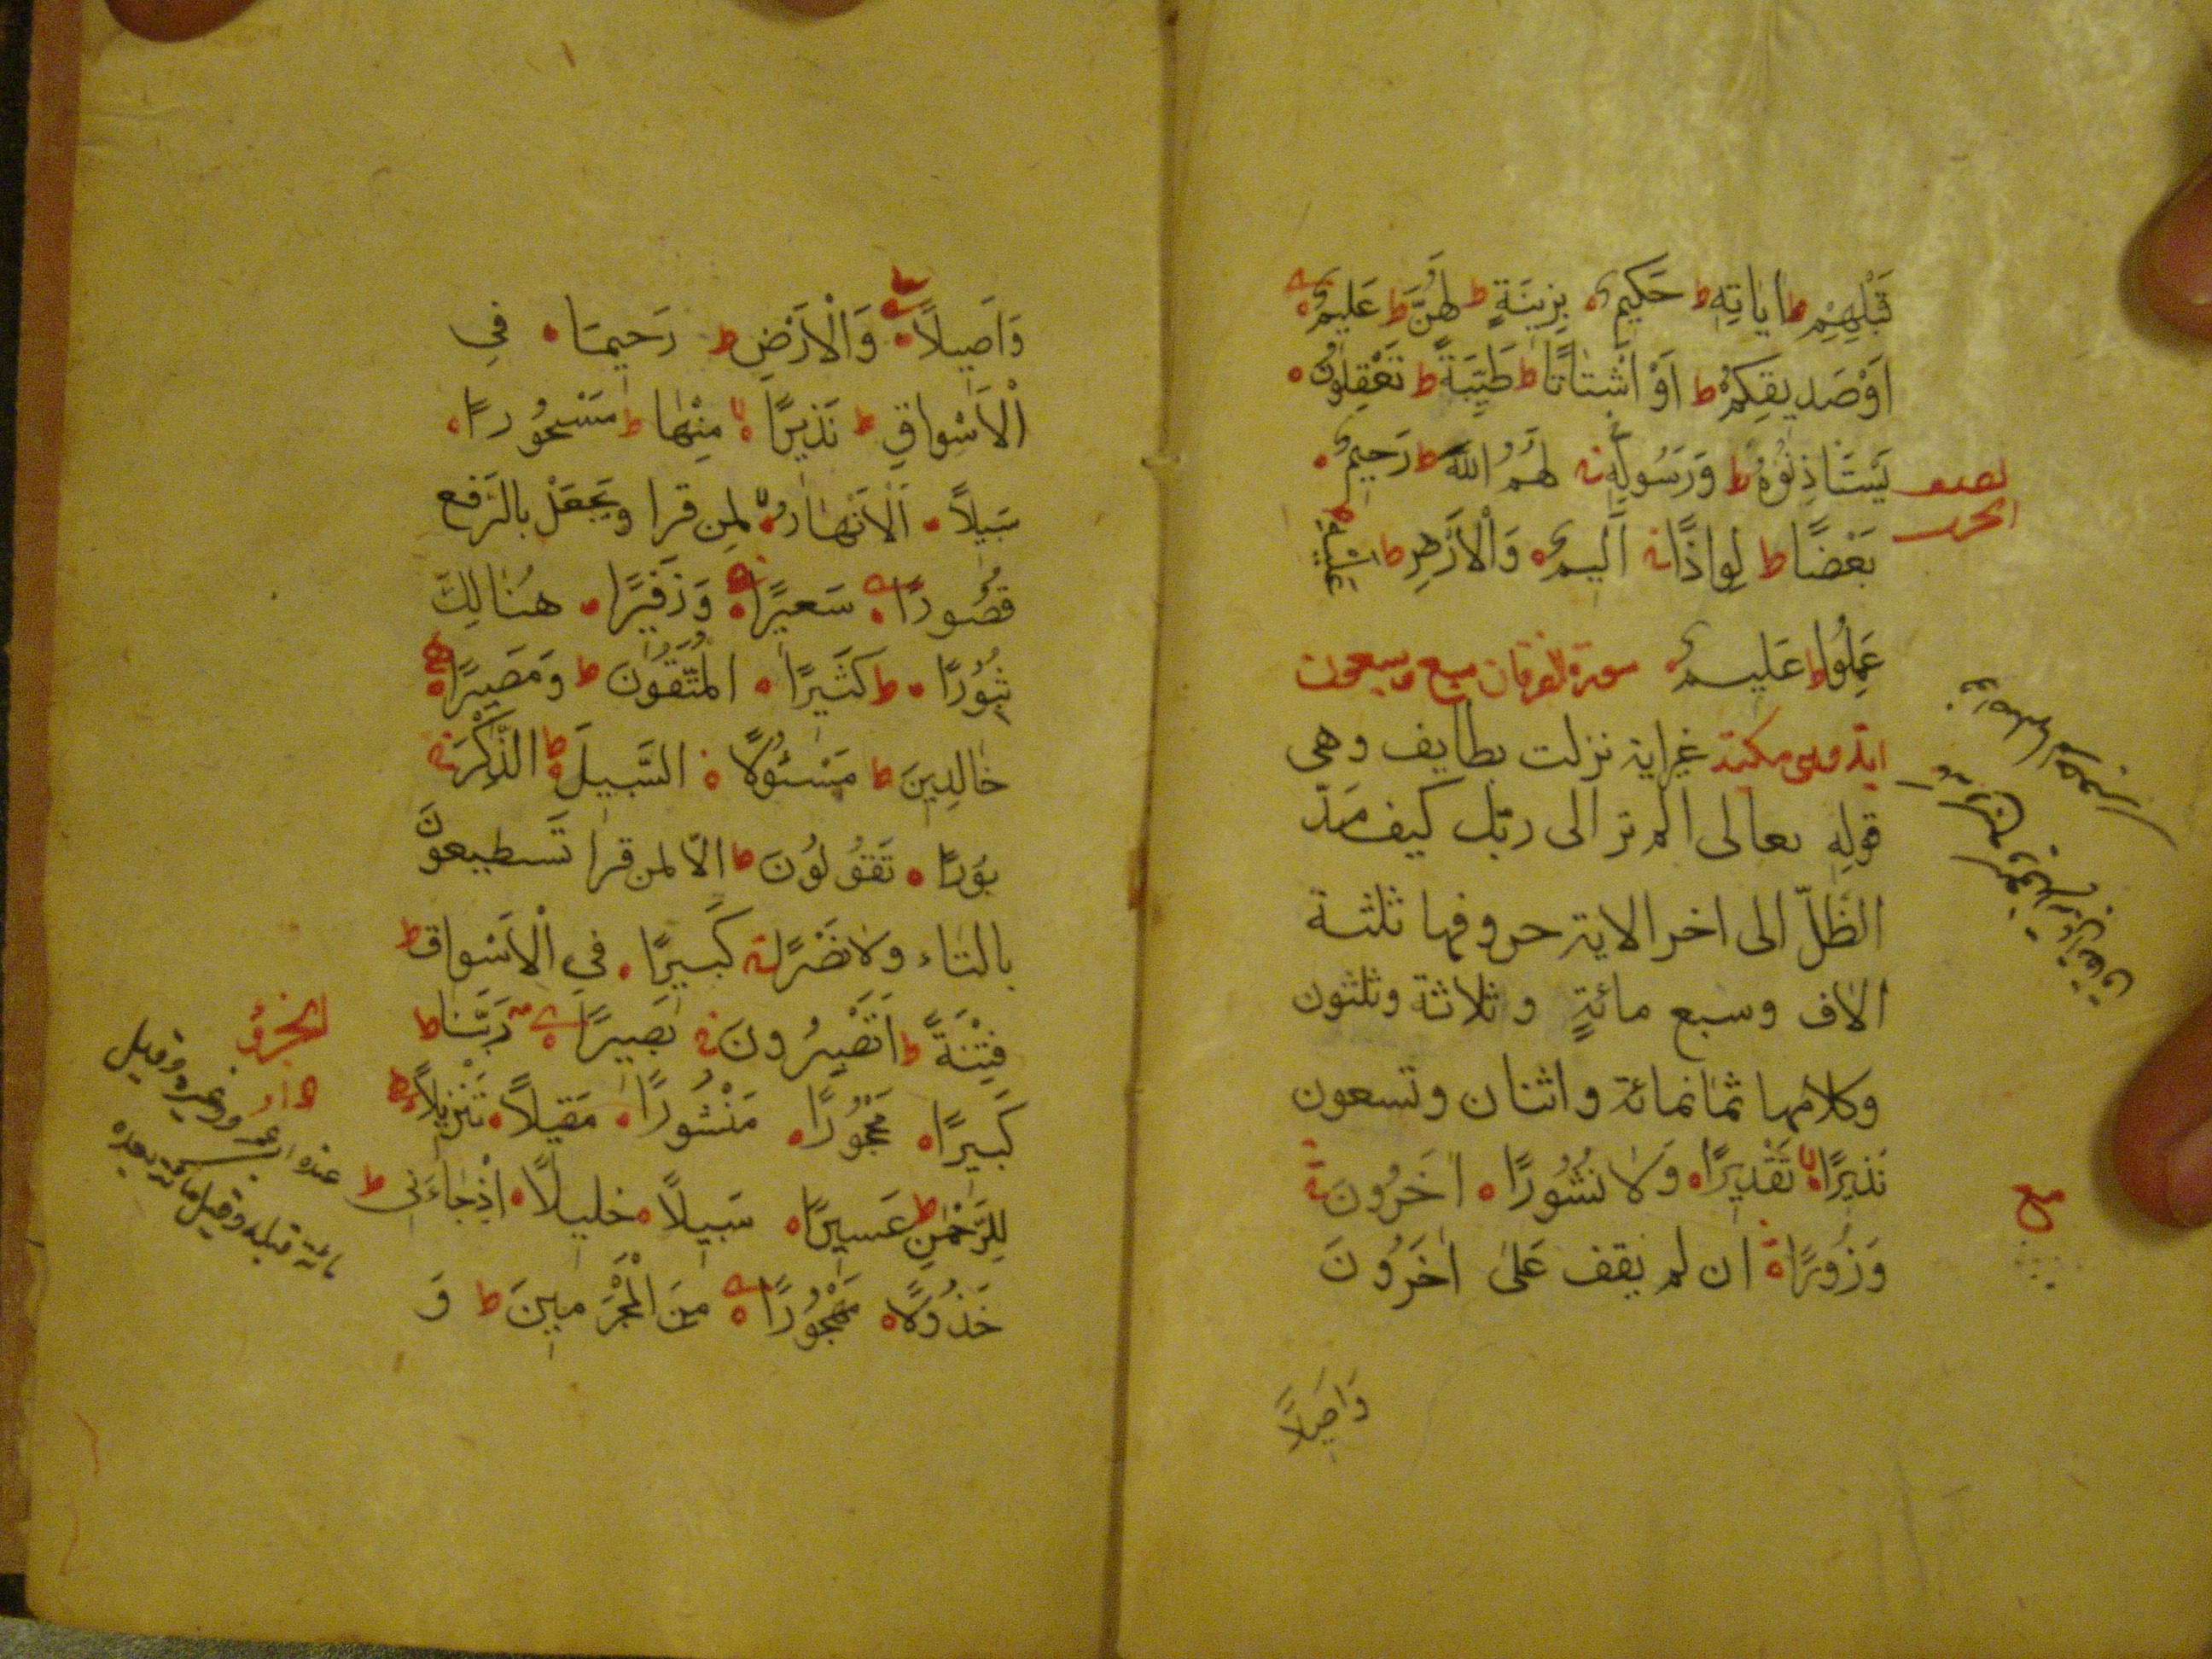 قَبْلِهِمْ ط اٰيَاتِهٖ ط حَكِيمٌ ه بِزِينَةٍ ط لَهُنَّ ط عَلِيمٌ ه
اَوْ صَدِيقِكُمْ ط اَوْ اَشْتَاتًا ط طَيِّبَةً ط تَعْقِلُونَ ه
يَسْتَاْذِنُوهُ ط وَرَسُولِهٖ لَهُمُ اللّٰهَ ط رَحِيمٌ ه
نصف
الحزب
بَعْضًا ط لِوَاذًا اَلِيمٌ ه وَالْاَرْضِ ط عَلَيْهِ ط
عَمِلُوا ط عَلِيمٌ ه سورة الفرقان سبع وسبعون
اية وهى مكية غير اية نزلت بطايف وهى
قوله تعالى الم تر الى ربّك كيف مدّ
الظّلّ الى اخر الاية حروفها ثلثة
الاف وسبع مائةٍ وثلاثة وثلثون
وكلامها ثمانمائة واثنان وتسعون
نَذِيرًا لا تَقْدِيرًا ه وَلَا نُشُورًا ه اٰخَرُونَ
مع
وَزُورًا ان لم يقف على اٰخَرُونَ
وَاَصِيلًا
وَاَصِيلًا ه وَالْاَرْضِ ط رَحِيمًا ه فِي
الْاَسْوَاقِ ط نَذِيرًا لا مِنْهَا ط مَسْحُورًا ه
سَبِيلًا ه الْاَنْهَارُ لا لمن قرا ويجعل بالرفع
قُصُورًا ه سَعِيرًا ه وَزَفِيرًا ه هُنَالِكَ
ثُبُورًا ه ط كَثِيرًا ه الْمُتَّقُونَ ط وَمَصِيرًا ه
خَالِدِينَ ط مَسْئُولًا ه السَّبِيلَ ط الذِّكْرَ
بُورًا ه تَقُولُونَ ط الّا لمن قرا تَسْتَطِيعُونَ
بالتاء وَلَا نَصْرًا كَبِيرًا ه فِي الْاَسْوَاقِ ط
فِتْنَةً ط اَتَصْبِرُونَ بَصِيرًا ه رَبَّنَا ط
الجزؤ
كَبِيرًا ه مَحْجُورًا ه مَنْثُورًا ه مَقِيلًا ه تَنْزِيلًا
لِلرَّحْمٰنِ ط عَسِيرًا ه سَبِيلًا ه خَلِيلًا ه اِذْ جَاءَنِي ط
خَذُولًا ه مَهْجُورًا ه مِنَ الْمُجْرِمِينَ ط وَ